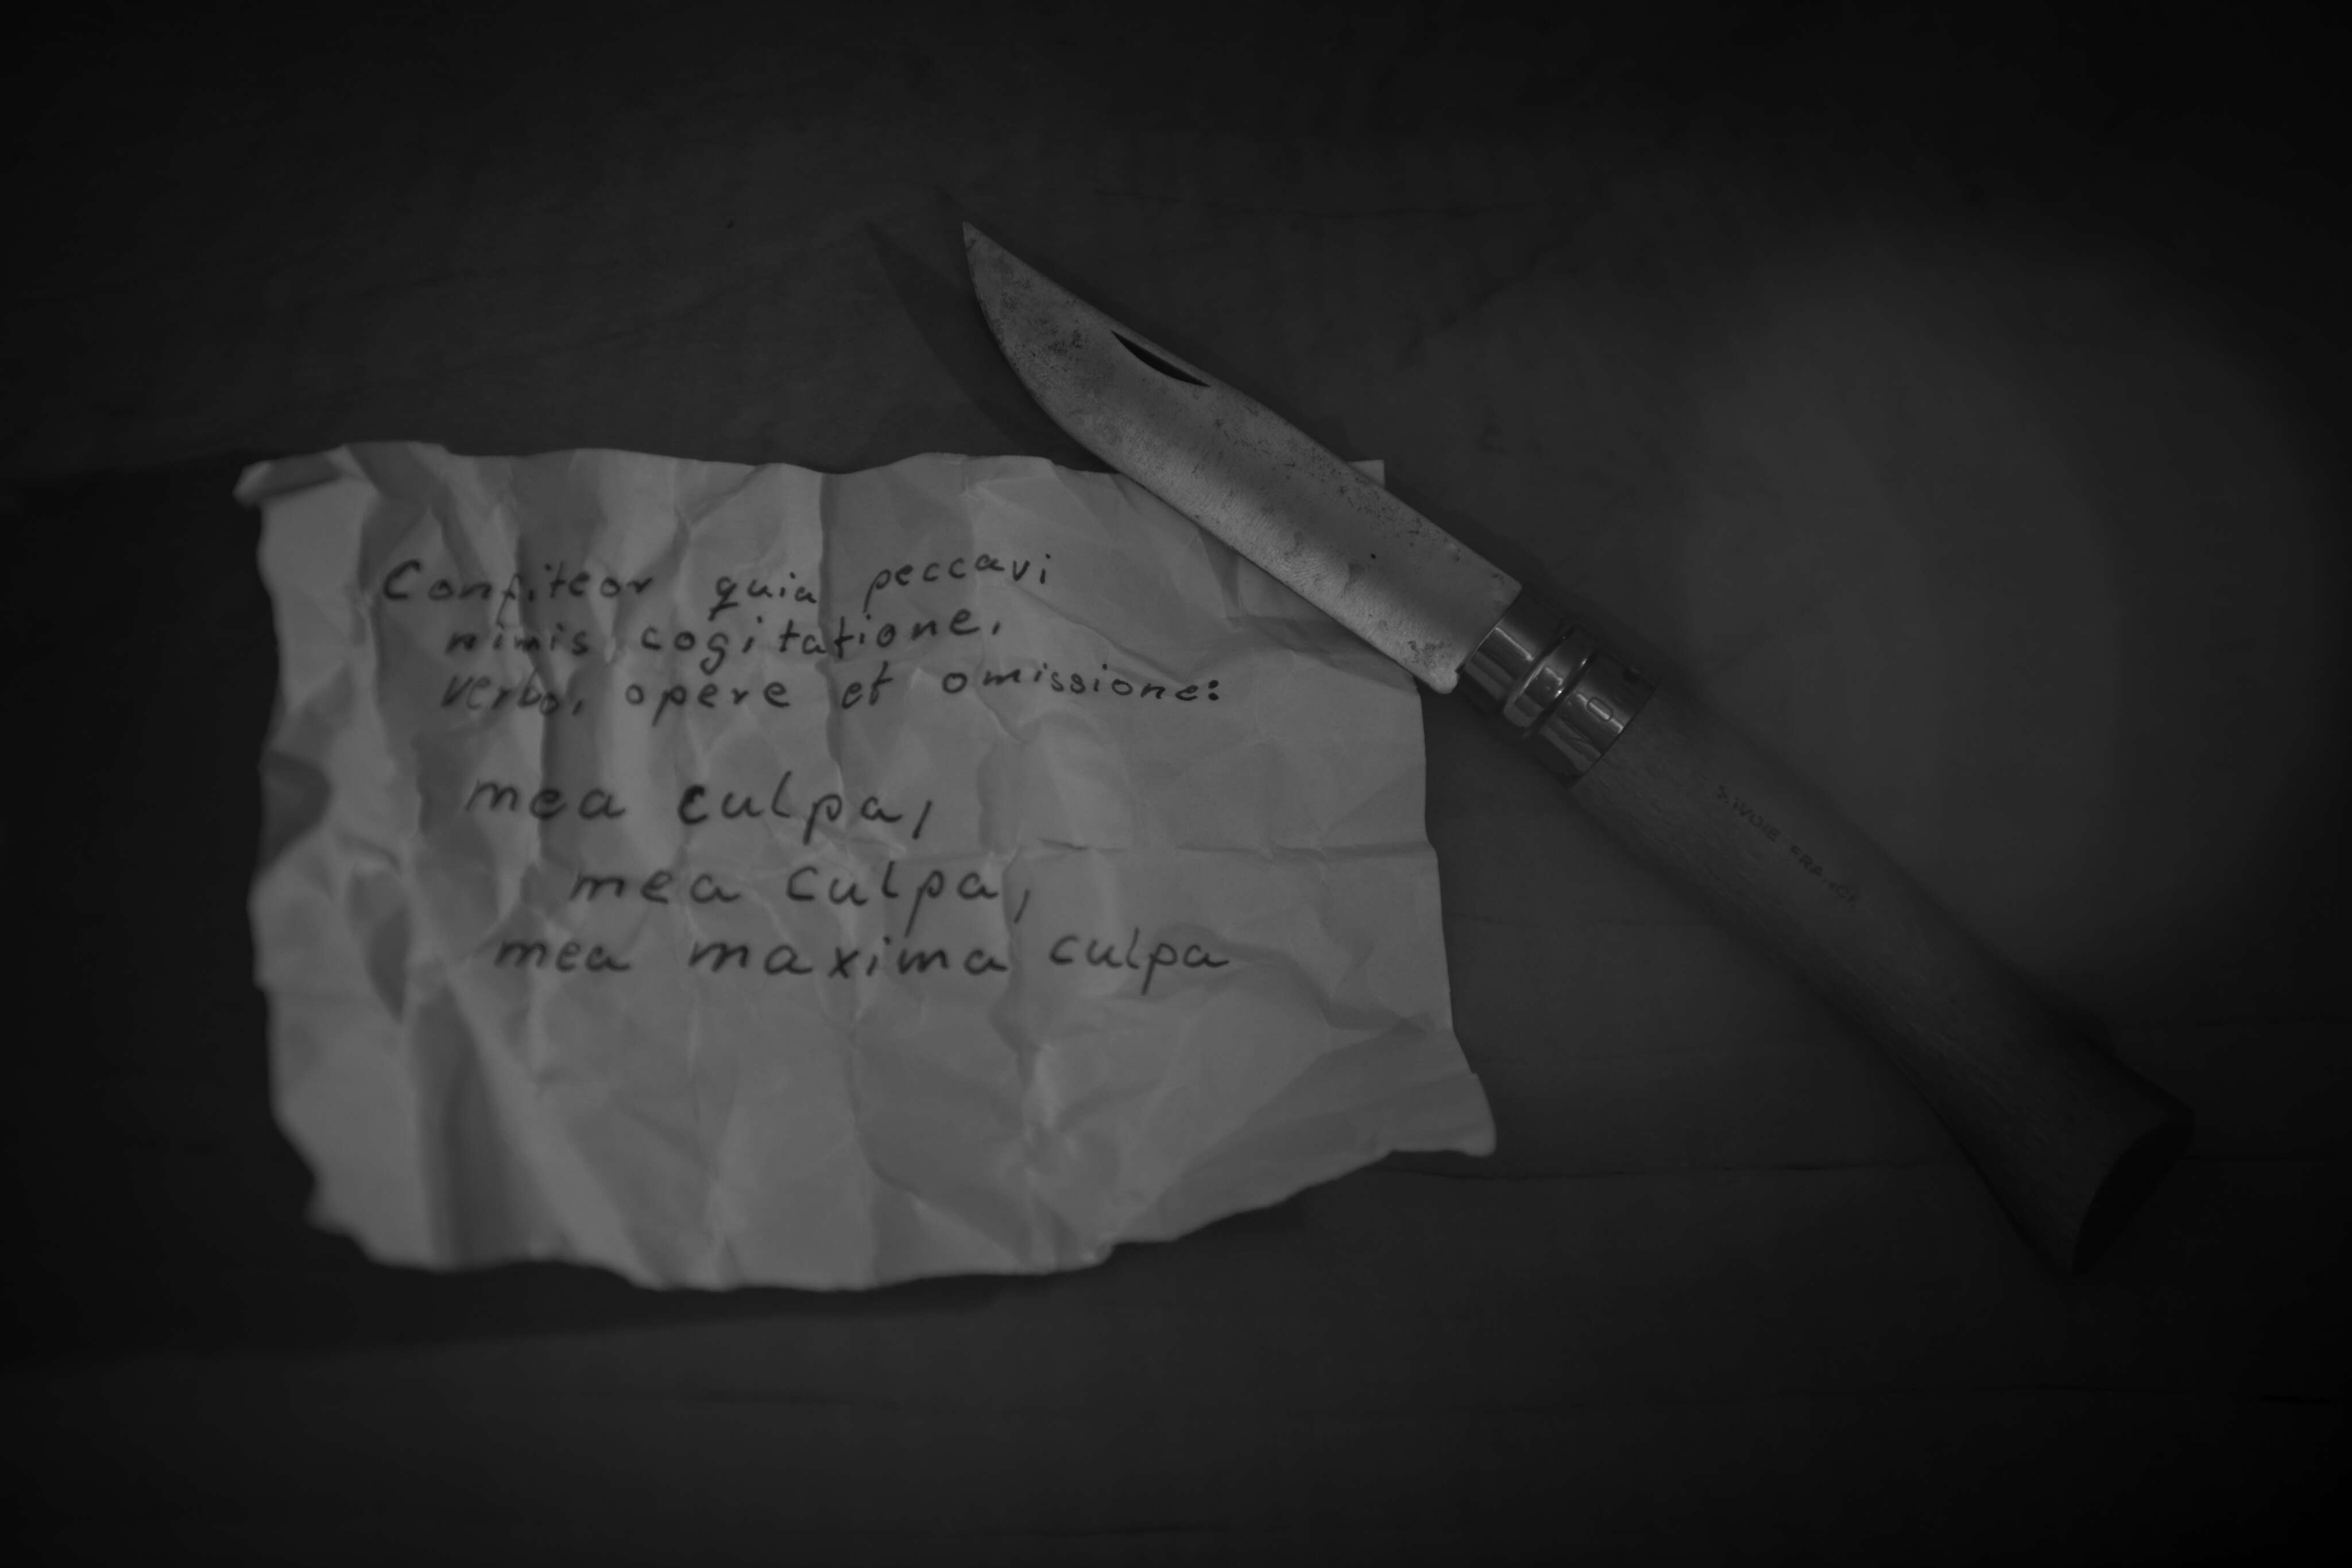 Confiteor quia peccavi
nimis cogitatione,
verbo, opere et omissione:
mea culpa,
mea culpa,
mea maxima culpa
SAVOIE FRANCE